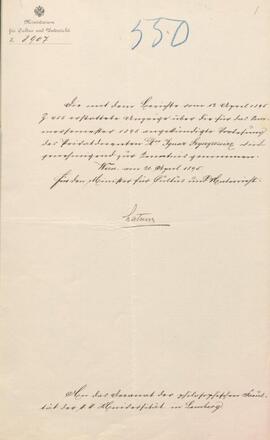 Ministerium
für Cultus und Unterricht
Z. 8907
550
Die mit dem Berichte vom 13 April 1895
Z 455 erstattete Anzeige über die für das Som-
mersemester 1895 angekündigte Vorlesung
des Privatdocenten Dr. Ignaz
genehmigend zur Kenntnis genommen.
Wien, am 20 April 1895
Für den Minister für Cultus und Unterricht:
An das Decanat der philosophischen Facul-
tät der k. k. Universität in Lemberg